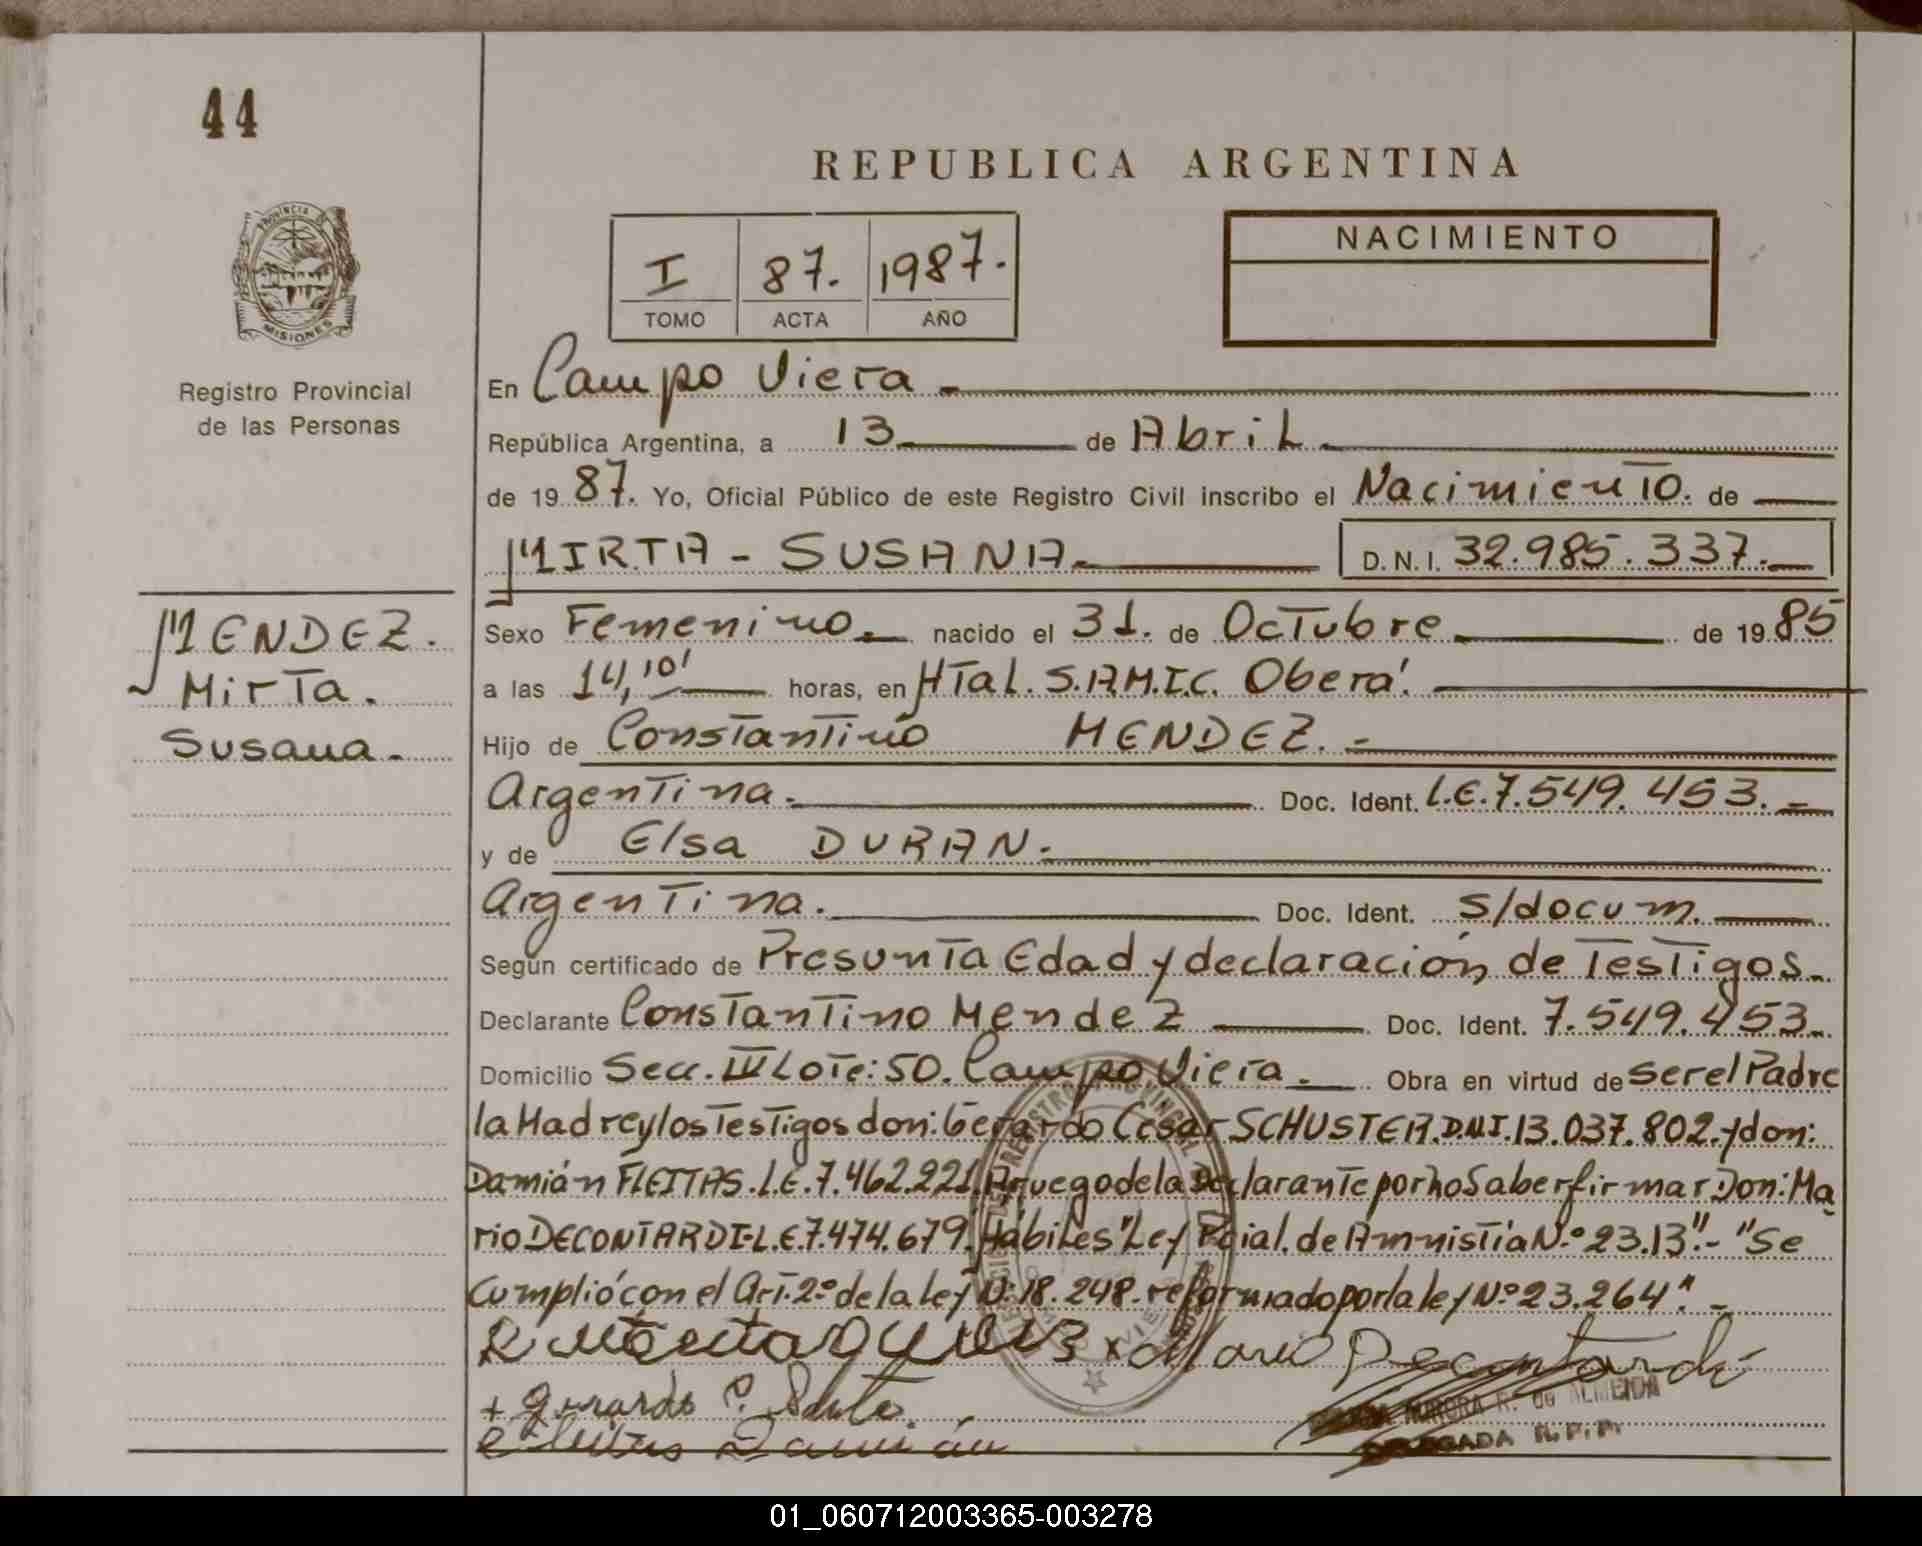 44
REPUBLICA ARGENTINA
PROVINCIA DE
MISIONES
Registro Provincial
de las Personas
I 87. 1987.
TOMO ACTA AÑO
NACIMIENTO
En Campo Viera -
República Argentina, a 13 de Abril
de 19 87. Yo, Oficial Público de este Registro Civil inscribo el Nacimiento. de
MIRTA - SUSANA. D.N.I. 32.985.337.-
MENDEZ.
Mirta.
Susana -
Sexo Femenino. nacido el 31. de Octubre de 19 85
a las 14,10' horas, en Htal. S.A.M.I.C. Oberá.
Hijo de Constantino MENDEZ. -
Argentina. Doc. Ident. L.E. 7.549.453. -
y de Elsa DURAN.
Argentina. Doc. Ident. s/docum.
Según certificado de Presunta Edad y declaración de Testigos.
Declarante Constantino Mendez Doc. Ident. 7.549.453.
Domicilio Secc. IV Lote: 50. Campo Viera. Obra en virtud de ser el Padre
la Madre y los Testigos don: Gerardo César SCHUSTER. D.N.I. 13.037.802. y don:
Damián FLEITAS. L.E. 7.462.221. A ruego de la Declarante por no Saber firmar Don: Ma
rio DECONTARDI - L.E. 7.474.679. Hábiles "Ley Pcial. de Amnistía N.º 23.13". - "Se
cumplió con el Art. 2º de la ley N: 18.248. reformado por la ley Nº 23.264". -
x Mario Decontardi
+ Gerardo C.
Fleitas Damián
AURORA R. de ALMEIDA
DELEGADA R.P.P.
01_060712003365-003278